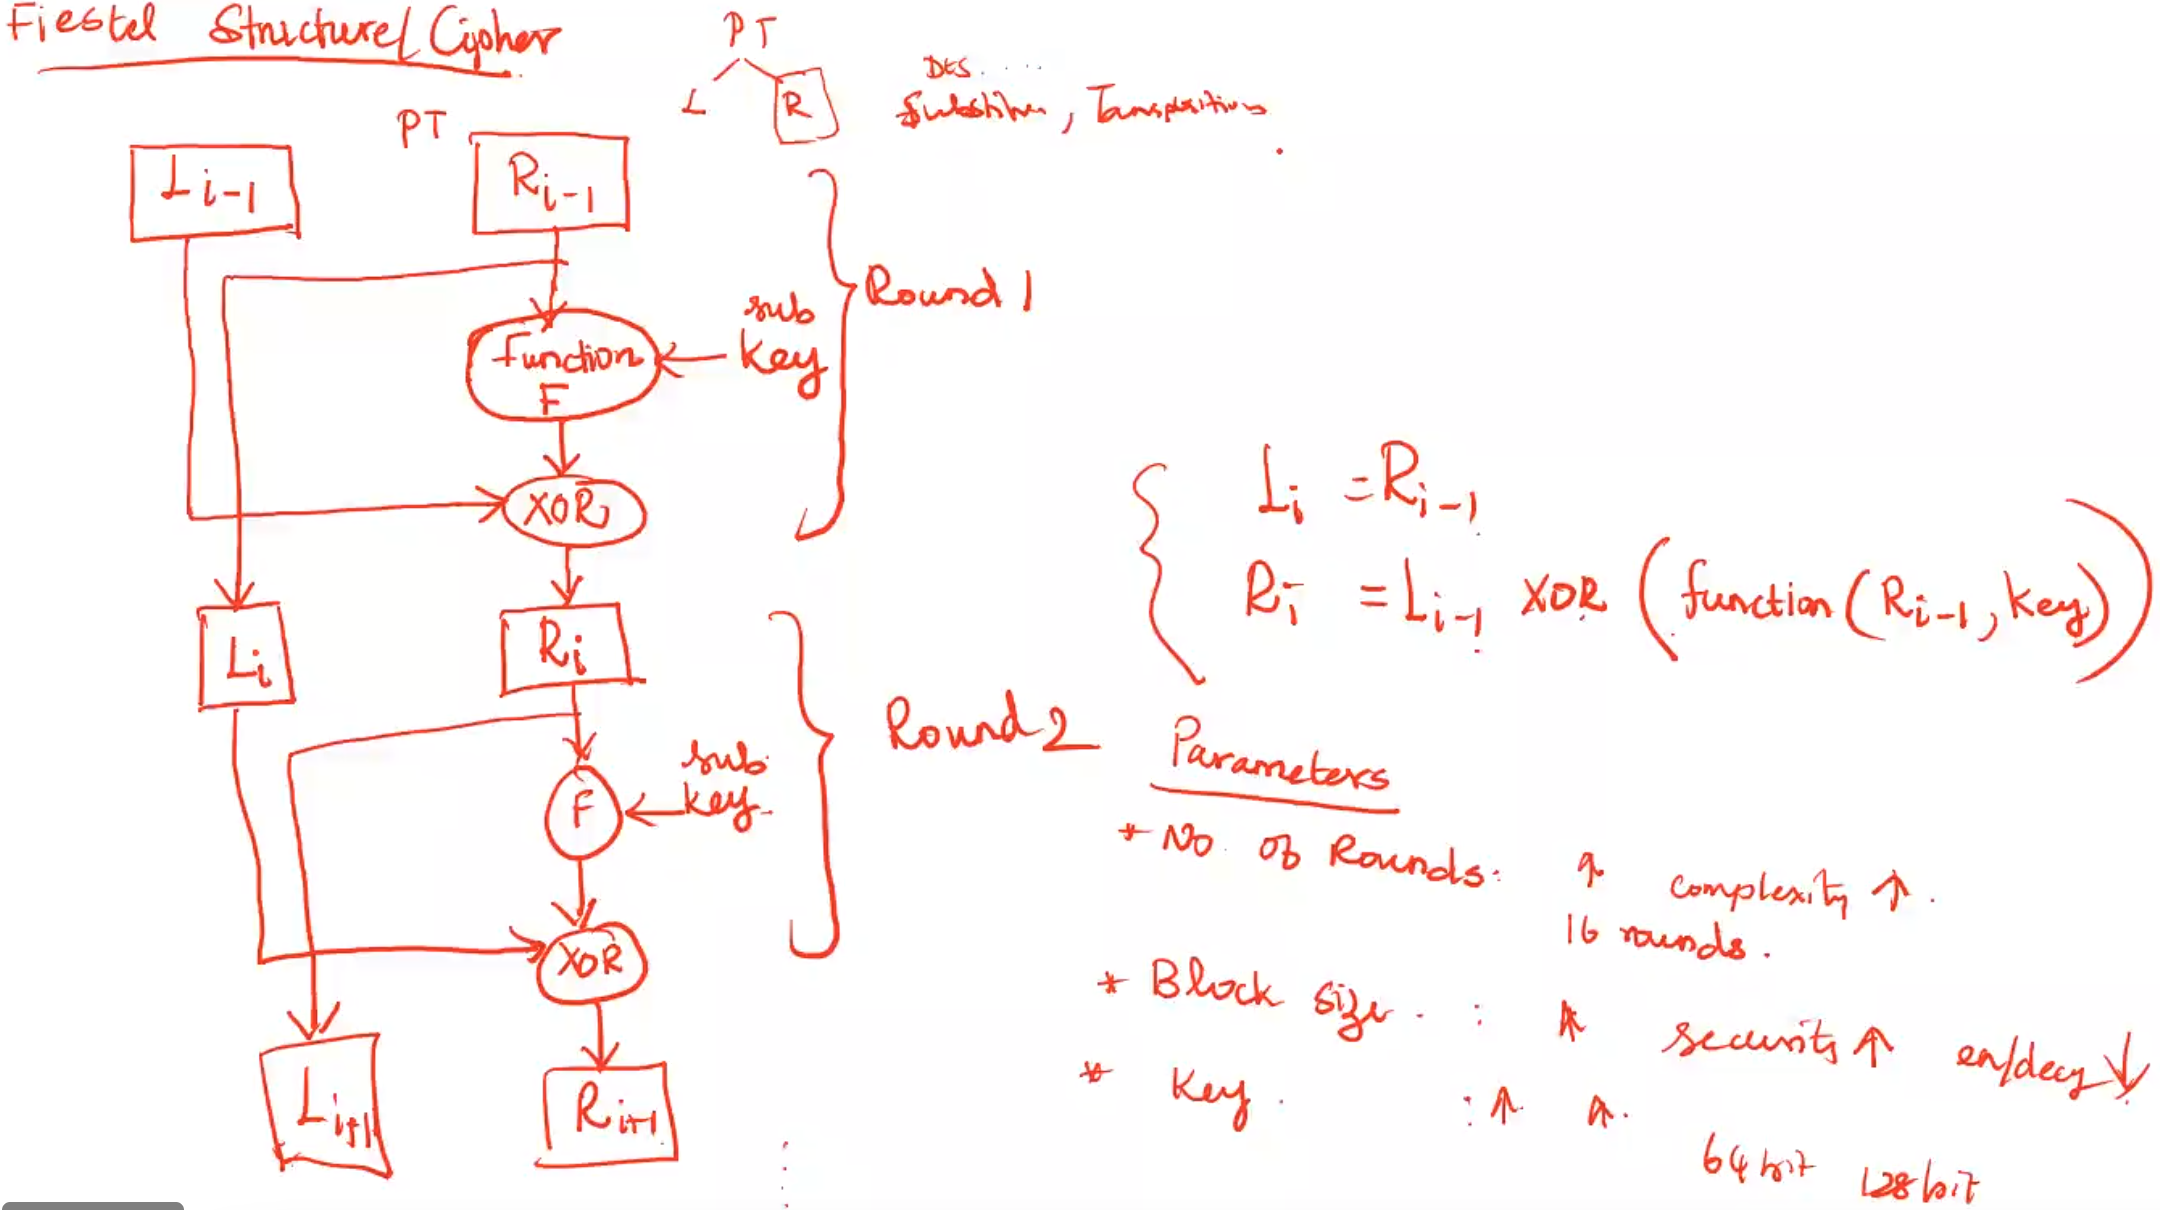 Fiestel Structure/Cipher
PT
L R
DES.....
Substitun, Transpositions
PT
Li-1 Ri-1
Round 1
function
F
sub
key
XOR
Li Ri
Round 2
F
sub
key.
XOR
Li+1 Ri+1
Li = Ri-1
Ri = Li-1 XOR (function(Ri-1, key))
Parameters
* No. of Rounds: ↑ complexity ↑.
16 rounds.
* Block size. : ↑ security ↑ en/decy ↓
* Key. : ↑ ↑.
64 bit 128 bit